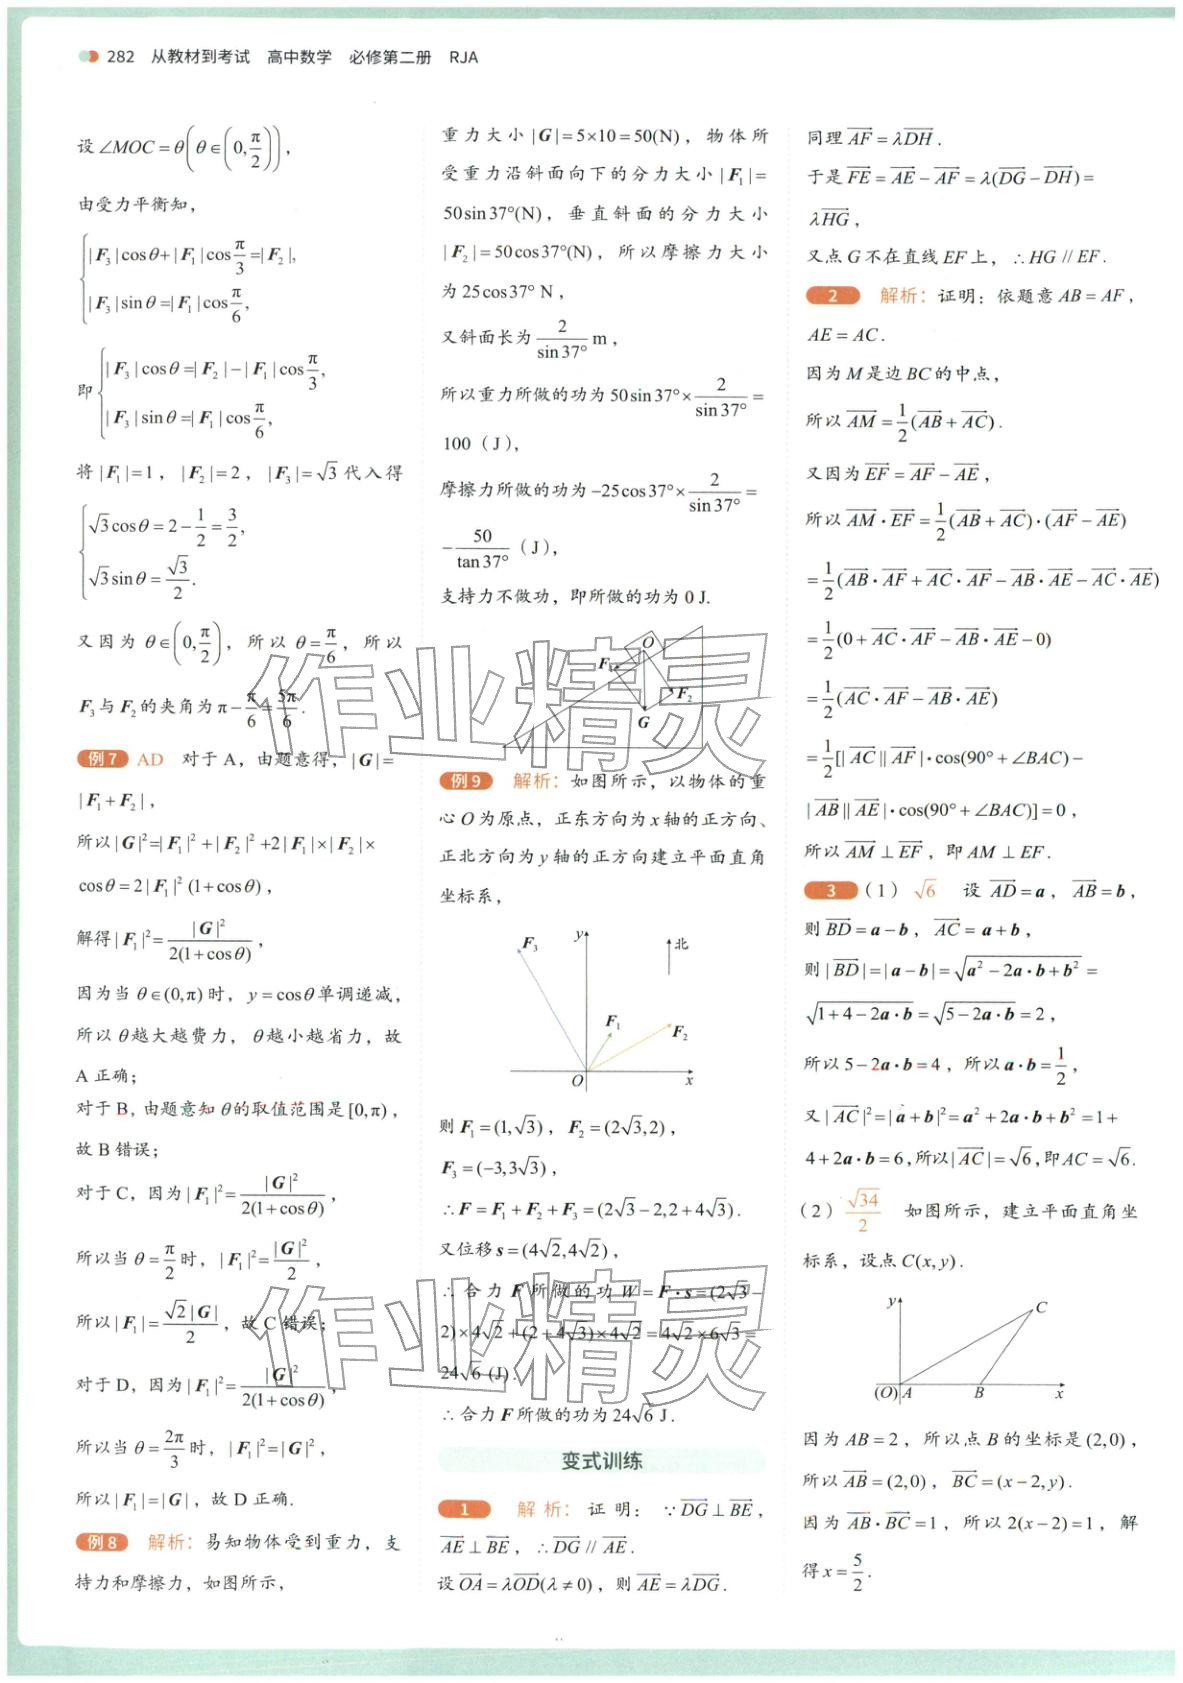 282 从教材到考试 高中数学 必修第二册 RJA
设∠MOC=θ(θ∈(0,π/2)),
由受力平衡知,
{|F₃|cosθ+|F₁|cos π/3=|F₂|,
|F₃|sinθ=|F₁|cos π/6,
即{|F₃|cosθ=|F₂|-|F₁|cos π/3,
|F₃|sinθ=|F₁|cos π/6,
将|F₁|=1, |F₂|=2, |F₃|=√3代入得
{√3cosθ=2-1/2=3/2,
√3sinθ=√3/2.
又因为θ∈(0,π/2), 所以θ=π/6, 所以
F₃与F₂的夹角为π-π/6=5π/6.
例7 AD 对于A, 由题意得, |G|=
|F₁+F₂|,
所以|G|²=|F₁|²+|F₂|²+2|F₁|×|F₂|×
cosθ=2|F₁|²(1+cosθ),
解得|F₁|²=|G|²/2(1+cosθ),
因为当θ∈(0,π)时, y=cosθ单调递减,
所以θ越大越费力, θ越小越省力, 故
A正确;
对于B, 由题意知θ的取值范围是[0,π),
故B错误;
对于C, 因为|F₁|²=|G|²/2(1+cosθ),
所以当θ=π/2时, |F₁|²=|G|²/2,
所以|F₁|=√2|G|/2, 故C错误;
对于D, 因为|F₁|²=|G|²/2(1+cosθ),
所以当θ=2π/3时, |F₁|²=|G|²,
所以|F₁|=|G|, 故D正确.
例8 解析: 易知物体受到重力, 支
持力和摩擦力, 如图所示,
重力大小|G|=5×10=50(N), 物体所
受重力沿斜面向下的分力大小|F₁|=
50sin37°(N), 垂直斜面的分力大小
|F₂|=50cos37°(N), 所以摩擦力大小
为25cos37° N,
又斜面长为2/sin37° m,
所以重力所做的功为50sin37°×2/sin37°=
100(J),
摩擦力所做的功为-25cos37°×2/sin37°=
-50/tan37°(J),
支持力不做功, 即所做的功为0 J.
O
F₁
F₂
G
例9 解析: 如图所示, 以物体的重
心O为原点, 正东方向为x轴的正方向、
正北方向为y轴的正方向建立平面直角
坐标系,
y
F₃
北
F₁
F₂
O
x
则F₁=(1,√3), F₂=(2√3,2),
F₃=(-3,3√3),
∴F=F₁+F₂+F₃=(2√3-2,2+4√3).
又位移s=(4√2,4√2),
∴合力F所做的功W=F·s=(2√3-
2)×4√2+(2+4√3)×4√2=4√2×6√3=
24√6(J).
∴合力F所做的功为24√6 J.
变式训练
1 解析: 证明: ∵DG⃗⊥BE⃗,
AE⃗⊥BE⃗, ∴DG⃗∥AE⃗.
设OA⃗=λOD⃗(λ≠0), 则AE⃗=λDG⃗.
同理AF⃗=λDH⃗.
于是FE⃗=AE⃗-AF⃗=λ(DG⃗-DH⃗)=
λHG⃗,
又点G不在直线EF上, ∴HG∥EF.
2 解析: 证明: 依题意AB=AF,
AE=AC.
因为M是边BC的中点,
所以AM⃗=1/2(AB⃗+AC⃗).
又因为EF⃗=AF⃗-AE⃗,
所以AM⃗·EF⃗=1/2(AB⃗+AC⃗)·(AF⃗-AE⃗)
=1/2(AB⃗·AF⃗+AC⃗·AF⃗-AB⃗·AE⃗-AC⃗·AE⃗)
=1/2(0+AC⃗·AF⃗-AB⃗·AE⃗-0)
=1/2(AC⃗·AF⃗-AB⃗·AE⃗)
=1/2[|AC⃗||AF⃗|·cos(90°+∠BAC)-
|AB⃗||AE⃗|·cos(90°+∠BAC)]=0,
所以AM⃗⊥EF⃗, 即AM⊥EF.
3 (1) √6 设AD⃗=a, AB⃗=b,
则BD⃗=a-b, AC⃗=a+b,
则|BD⃗|=|a-b|=√(a²-2a·b+b²)=
√(1+4-2a·b)=√(5-2a·b)=2,
所以5-2a·b=4, 所以a·b=1/2,
又|AC⃗|²=|a+b|²=a²+2a·b+b²=1+
4+2a·b=6, 所以|AC⃗|=√6, 即AC=√6.
(2) √34/2 如图所示, 建立平面直角坐
标系, 设点C(x,y).
y
C
(O)A
B
x
因为AB=2, 所以点B的坐标是(2,0),
所以AB⃗=(2,0), BC⃗=(x-2,y).
因为AB⃗·BC⃗=1, 所以2(x-2)=1, 解
得x=5/2.
作业精灵
作业精灵